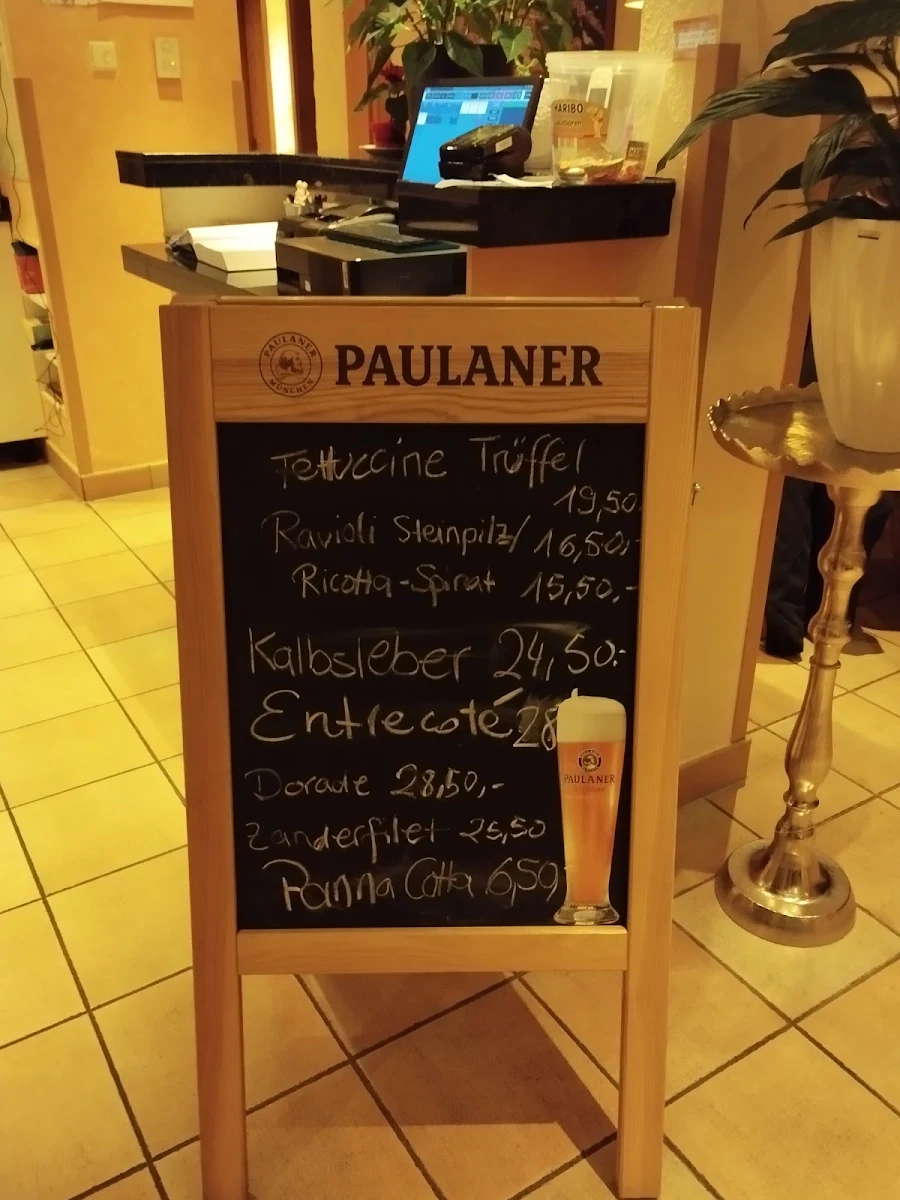 HARIBO
PAULANER
MÜNCHEN
PAULANER
Fettuccine Trüffel
19,50
Ravioli Steinpilz/ 16,50.-
Ricotta-Spinat 15,50.-
Kalbsleber 24,50.-
Entrecoté 28
Dorade 28,50,-
Zanderfilet 25,50
Panna Cotta 6,50
PAULANER